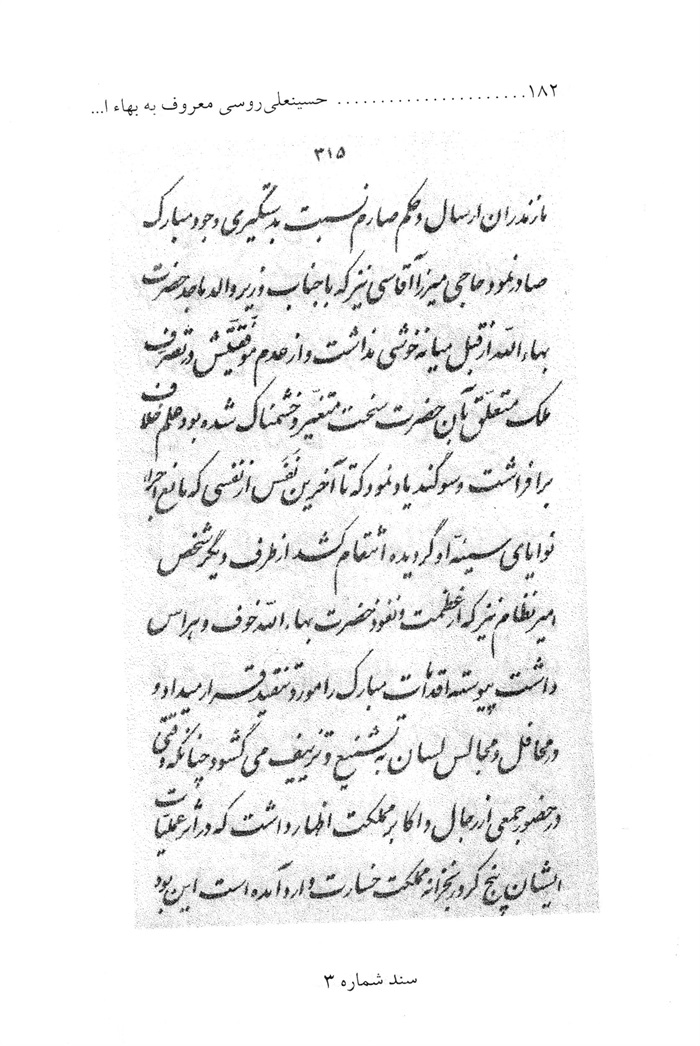 ۱۸۲ ...................... حسینعلی روسی معروف به بهاء ا...
۳۱۵
مازندران ارسال و حکم صارم نسبت بدستگیری وجود مبارک
صادر نمود حاجی میرزا آقاسی نیز که با جناب وزیر والد ماجد حضرت
بهاءالله از قبل میانه خوشی نداشت و از عدم موفقیّتش در تصرف
ملک متعلّق بآن حضرت سخت متغیّر و خشمناک شده بود علم خلاف
برافراشت و سوگند یاد نمود که تا آخرین نَفَس از نفسی که مانع اجرای
نوایای سیئهٔ او گردیده انتقام کشد از طرف دیگر شخص
امیر نظام نیز که از عظمت و نفوذ حضرت بهاءالله خوف و هراس
داشت پیوسته اقدامات مبارک را مورد تنقید قرار میداد و
در محافل و مجالس لسان به تشنیع و تزییف می گشود چنانکه وقتی
در حضور جمعی از رجال و اکابر مملکت اظهار داشت که در اثر عملیّات
ایشان پنج کرور بخزانه مملکت خسارت وارد آمده است این بود
سند شماره ۳